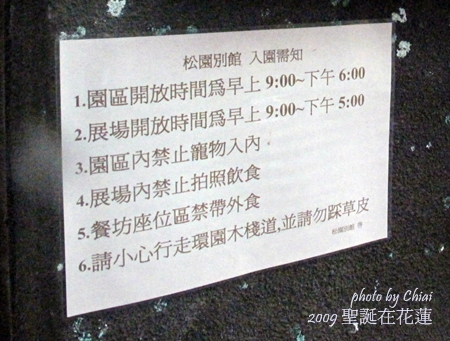 松園別館 入園需知
1.園區開放時間為早上 9:00~下午 6:00
2.展場開放時間為早上 9:00~下午 5:00
3.園區內禁止寵物入內
4.展場內禁止拍照飲食
5.餐坊座位區禁帶外食
6.請小心行走環園木棧道,並請勿踩草皮
松園別館
photo by Chiai
2009 聖誕在花蓮